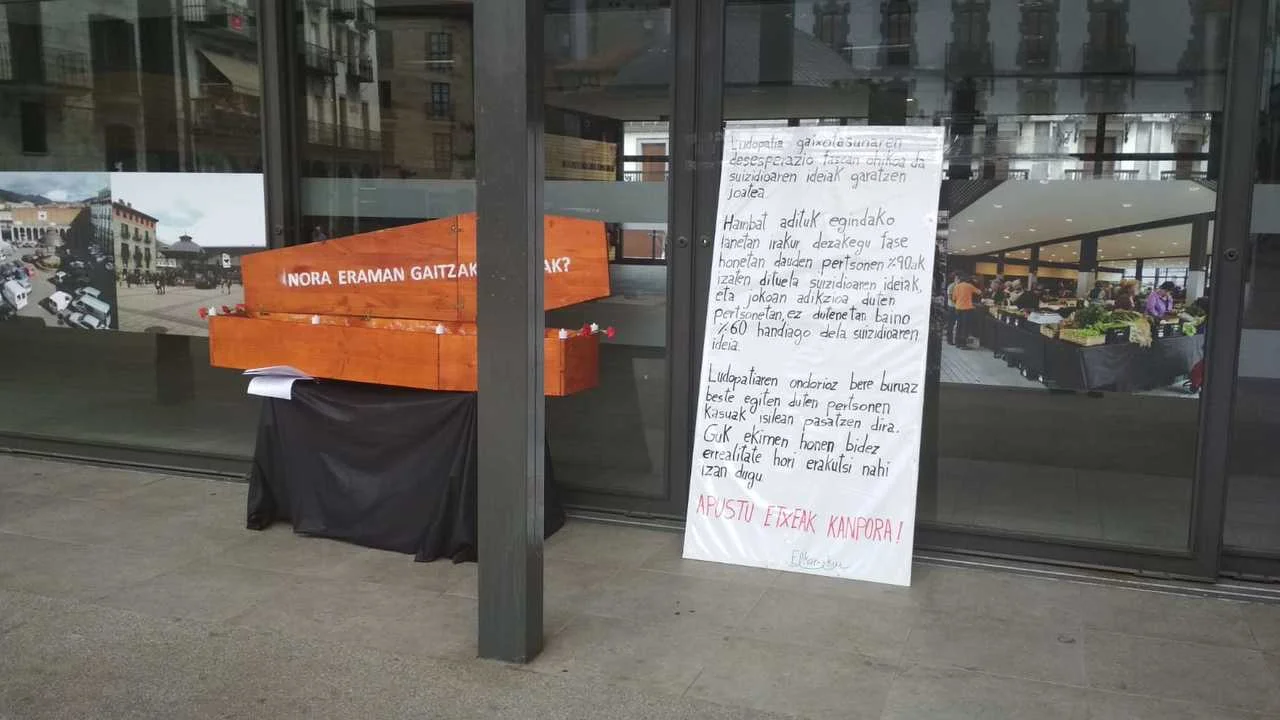 NORA ERAMAN GAITZAK AK?
Ludopatia gaixotasunaren
desesperazio fasean ohikoa da
suizidioaren ideiak garatzen
joatea.
Hainbat adituk egindako
lanetan irakur dezakegu fase
honetan dauden pertsonen %90ak
izaten dituela suizidioaren ideiak,
eta jokoan adikzioa duten
pertsonetan, ez dutenetan baino
%60 handiago dela suizidioaren
ideia.
Ludopatiaren ondorioz bere buruaz
beste egiten duten pertsonen
kasuak isilean pasatzen dira.
Guk ekimen honen bidez
errealitate hori erakutsi nahi
izan dugu
APUSTU ETXEAK KANPORA!